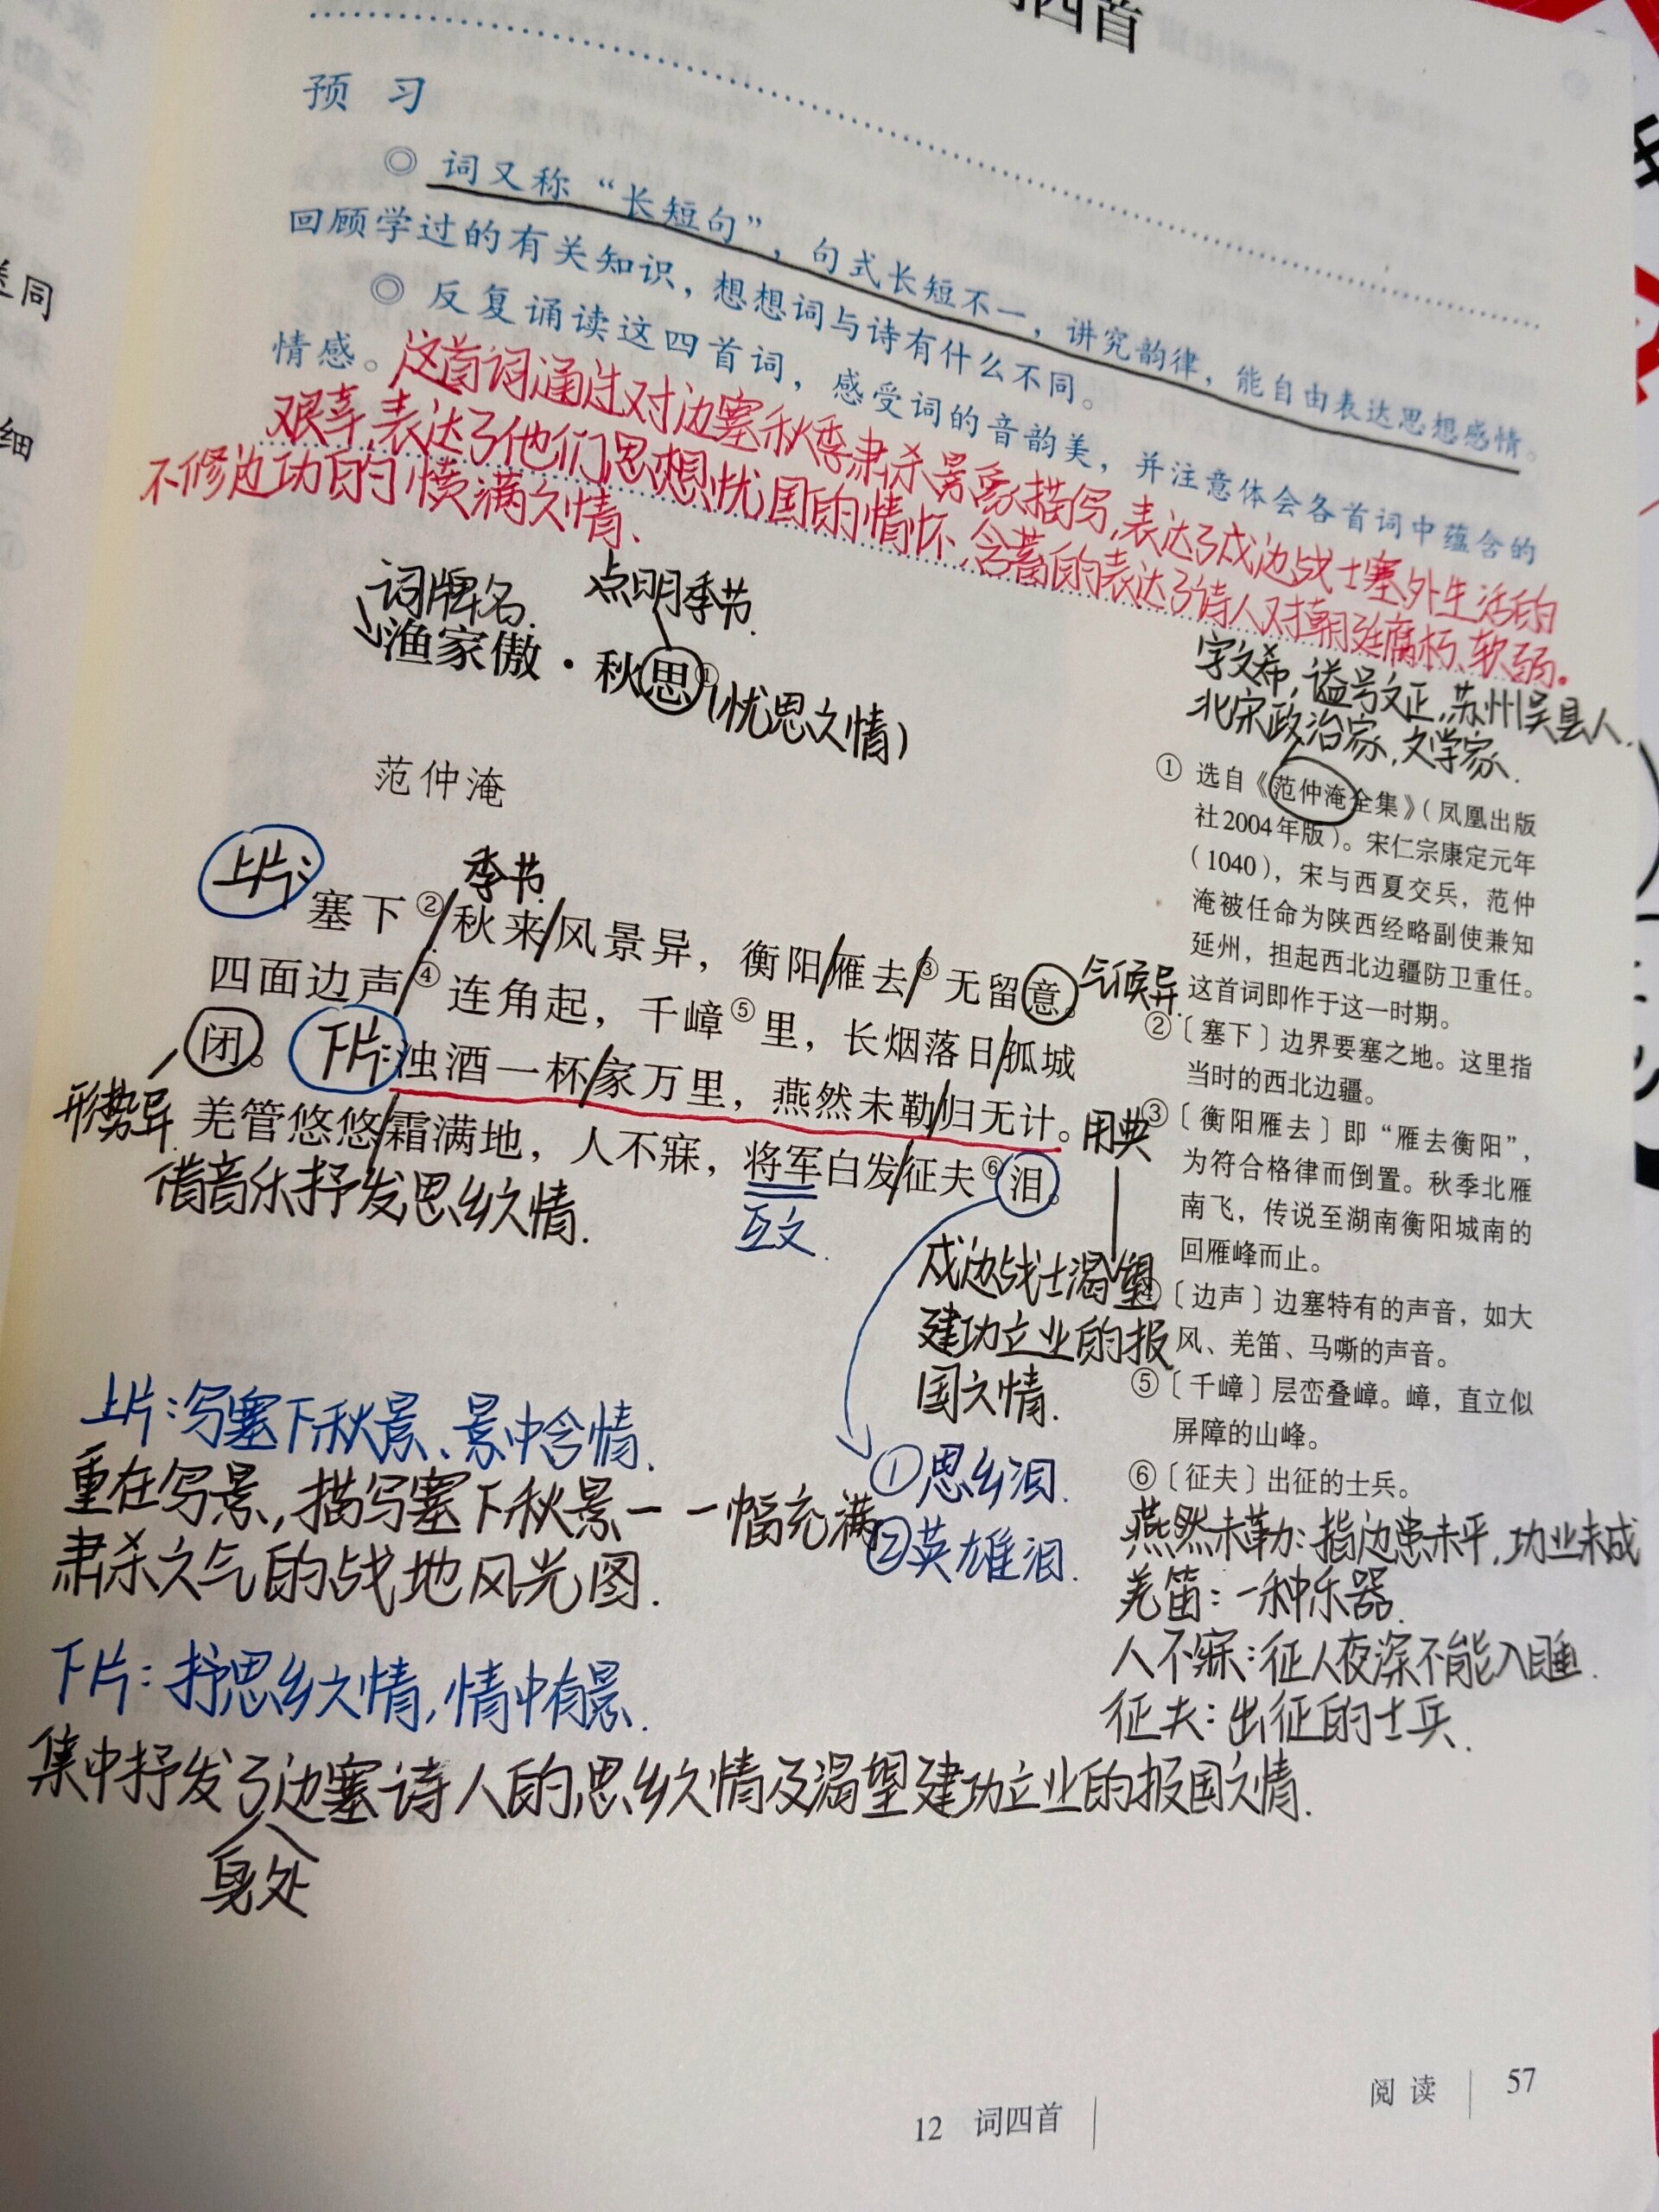 词四首
预 习
◎ 词又称“长短句”，句式长短不一，讲究韵律，能自由表达思想感情。
回顾学过的有关知识，想想词与诗有什么不同。
◎ 反复诵读这四首词，感受词的音韵美，并注意体会各首词中蕴含的
情感。
这首词通过对边塞秋季肃杀景象描写,表达了戍边战士塞外生活的
艰辛,表达了他们思想忧国的情怀,含蓄的表达了诗人对朝廷腐朽、软弱。
不修边功的愤满之情.
词牌名.
点明季节.
渔家傲·秋思①
(忧思之情)
范仲淹
上片:
季节.
塞下②/秋来/风景异，衡阳/雁去/③无留意。
气候异.
四面边声/④连角起，千嶂⑤里，长烟落日/孤城
闭。
形势异.
下片:
浊酒一杯/家万里，燕然未勒/归无计。
用典
羌管悠悠/霜满地，人不寐，将军白发/征夫⑥泪。
借音乐抒发思乡之情.
互文.
戍边战士渴望
建功立业的报
国之情.
①思乡泪.
②英雄泪.
上片:写塞下秋景、景中含情.
重在写景,描写塞下秋景一 一幅充满
肃杀之气的战地风光图.
下片:抒思乡之情,情中有景.
集中抒发了边塞诗人的思乡之情及渴望建功立业的报国之情.
身处
字文希,谥号文正,苏州吴县人.
北宋政治家,文学家.
① 选自《范仲淹全集》（凤凰出版
社2004年版）。宋仁宗康定元年
（1040），宋与西夏交兵，范仲
淹被任命为陕西经略副使兼知
延州，担起西北边疆防卫重任。
这首词即作于这一时期。
②〔塞下〕边界要塞之地。这里指
当时的西北边疆。
③〔衡阳雁去〕即“雁去衡阳”，
为符合格律而倒置。秋季北雁
南飞，传说至湖南衡阳城南的
回雁峰而止。
④〔边声〕边塞特有的声音，如大
风、羌笛、马嘶的声音。
⑤〔千嶂〕层峦叠嶂。嶂，直立似
屏障的山峰。
⑥〔征夫〕出征的士兵。
燕然未勒:指边患未平,功业未成
羌笛:一种乐器.
人不寐:征人夜深不能入睡.
征夫:出征的士兵.
12 词四首
阅读 57